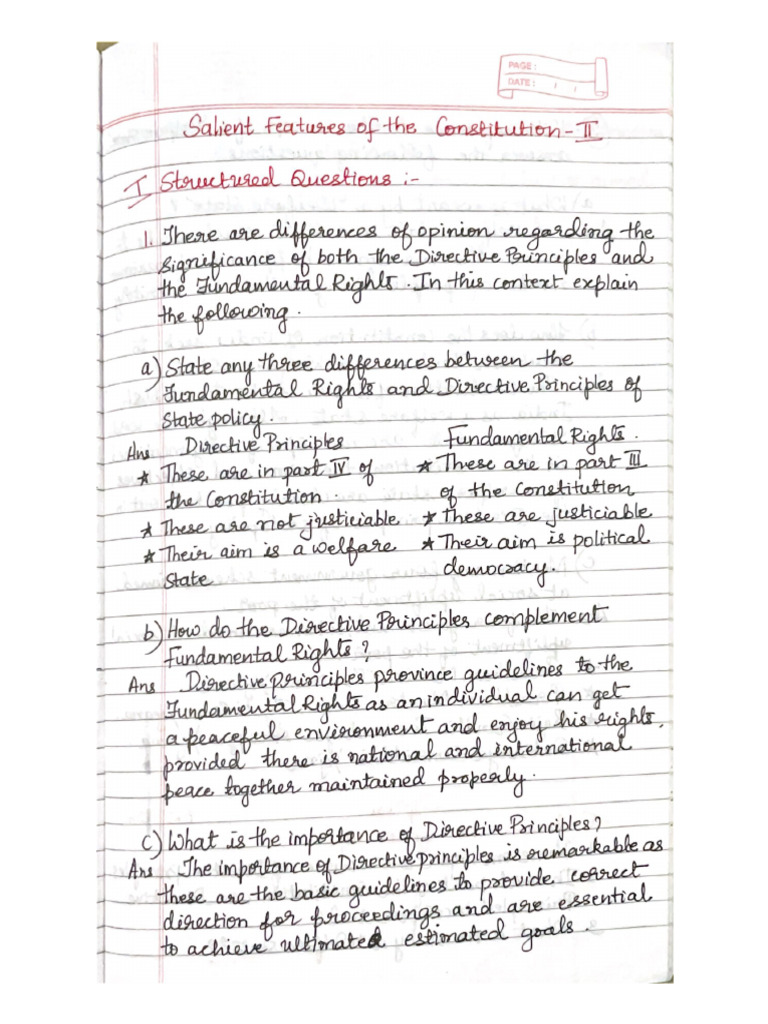 PAGE:
DATE: / /
Salient Features of the Constitution-II
I Structured Questions :-
1. There are differences of opinion regarding the
significance of both the Directive Principles and
the Fundamental Rights. In this context explain
the following.
a) State any three differences between the
Fundamental Rights and Directive Principles of
State policy.
Ans Directive Principles Fundamental Rights.
* These are in part IV of * These are in part III
the Constitution. of the Constitution
* These are not justiciable * These are justiciable
* Their aim is a welfare * Their aim is political
State democracy.
b) How do the Directive Principles complement
Fundamental Rights?
Ans Directive principles province guidelines to the
Fundamental Rights as an individual can get
a peaceful environment and enjoy his rights,
provided there is national and international
peace together maintained properly.
c) What is the importance of Directive Principles?
Ans The importance of Directive principles is remarkable as
these are the basic guidelines to provide correct
direction for proceedings and are essential
to achieve ultimated estimated goals.